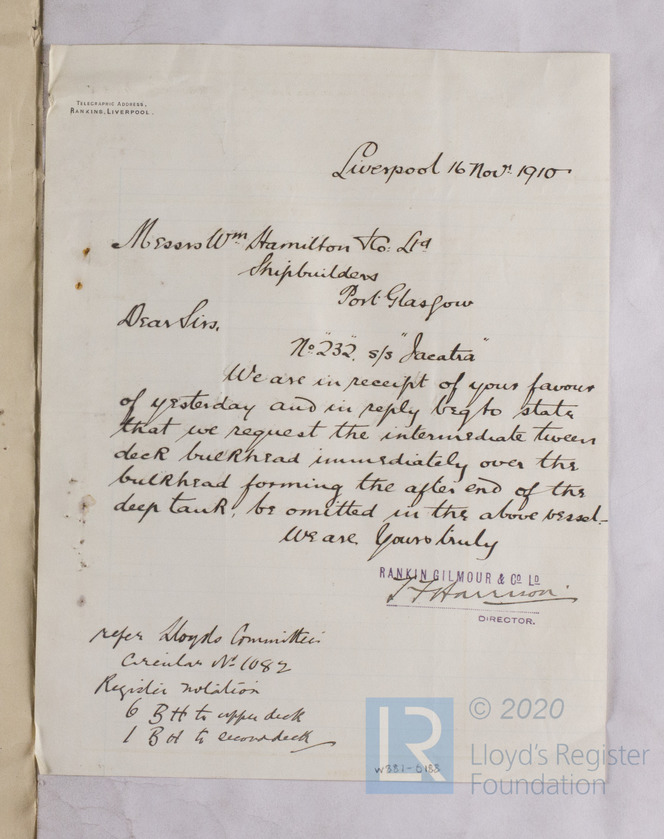 TELEGRAPHIC ADDRESS,
RANKING, LIVERPOOL.
Liverpool 16 Novr 1910
Messrs Wm Hamilton & Co: Ltd
Shipbuilders
Port Glasgow
Dear Sirs,
No "232" s/s "Jacatra"
We are in receipt of your favour
of yesterday and in reply beg to state
that we request the intermediate tween
deck bulkhead immediately over the
bulkhead forming the after end of the
deep tank, be omitted in the above vessel.
We are Yours truly
RANKIN GILMOUR & CO LD
Harrison
DIRECTOR.
refer Lloyds Committee
Circular No 1082
Register notation
6 BH to upper deck
1 BH to second deck
W881-0188
LR
© 2020
Lloyd's Register
Foundation